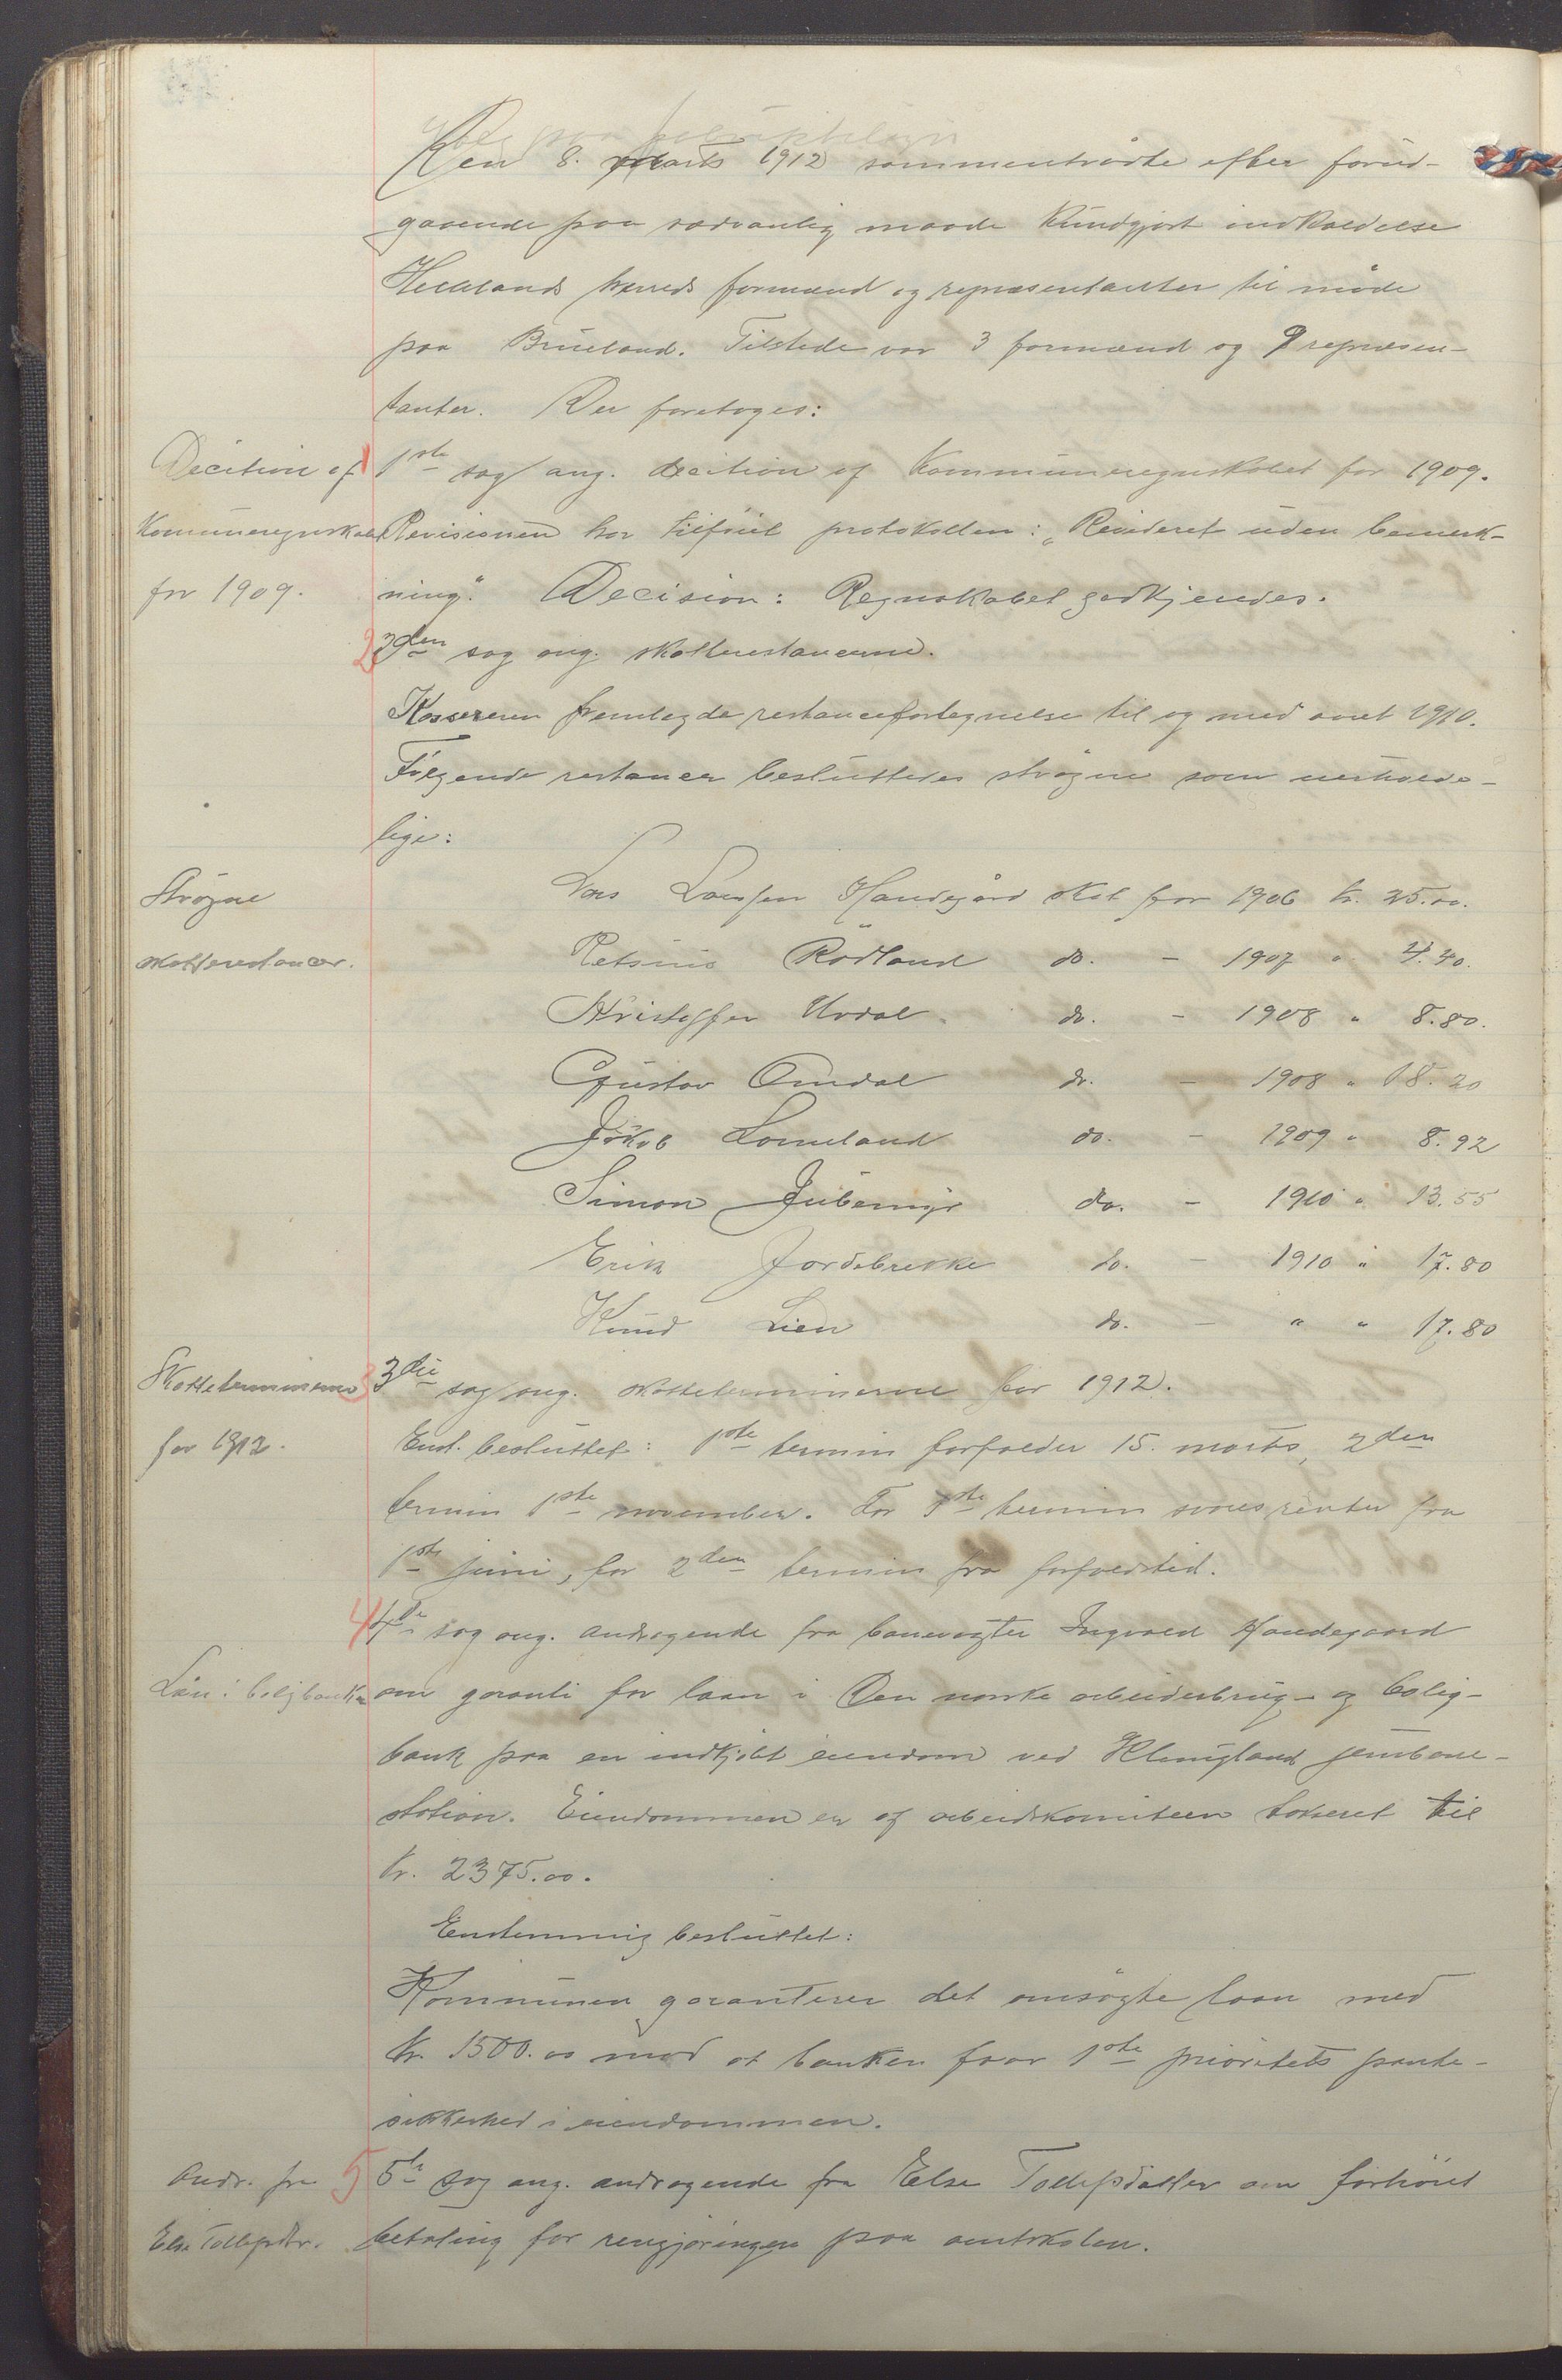 Den 8. marts 1912 sammentraadte efter forud-
gaaende paa sædvanlig maade kundgjort indkaldelse
Hellelands herreds formænd og repræsentanter til møde
paa Brueland. Tilstede var 3 formænd og 9 repræsen-
tanter. Der foretoges:
Decition af
Kommuneregnskabet
for 1909.
1 1ste sag ang. decition af kommuneregnskabet for 1909.
Revisionen har tilføiet protokollen: „Revideret uden bemerk-
ning." Decision: Regnskabet godkjendes.
2 2den sag ang. skatterestancerne.
Kassereren fremlagde restancefortegnelse til og med aaret 1910.
Følgende restancer besluttedes strøgne som uerholde-
lige:
Strøgne
skatterestancer.
Lars Larsen Haudegård skat for 1906 kr. 25.00.
Rødland do. - 1907 " 4.40.
Kristoffer Urdal do. - 1908 " 8.80.
Gustav Omdal do. - 1908 " 18.20
Jakob Lomeland do. - 1909 " 8.92
Simon do. - 1910 " 13.55
Erik Jordebrekke do. - 1910 " 17.80
Knud Lien do. - " " 17.80
Skatteterminerne
for 1912.
3 3die sag ang. skatteterminerne for 1912.
Enst. besluttet: 1ste termin forfalder 15. marts, 2den
termin 1ste november. For 1ste termin svares renter fra
1ste juni, for 2den termin fra forfaldstid.
4 4de sag ang. andragende fra banevogter Ingvald Haudegaard
Lån i boligbanken
om garanti for laan i Den norske arbeiderbrug- og bolig-
bank paa en indkjøbt eiendom ved Klungland jernbane-
station. Eiendommen er af arbeidskomiteen takseret til
kr. 2375.00.
Enstemmig besluttet:
Kommunen garanterer det ansøgte laan med
kr. 1500.00 mod at banken faar 1ste prioritets pante-
sikkerhed i eiendommen.
Andr. fra
Else Tollefsdtr.
5 5te sag ang. andragende fra Else Tollefsdatter om forhøiet
betaling for rengjøringen paa amtskolen.